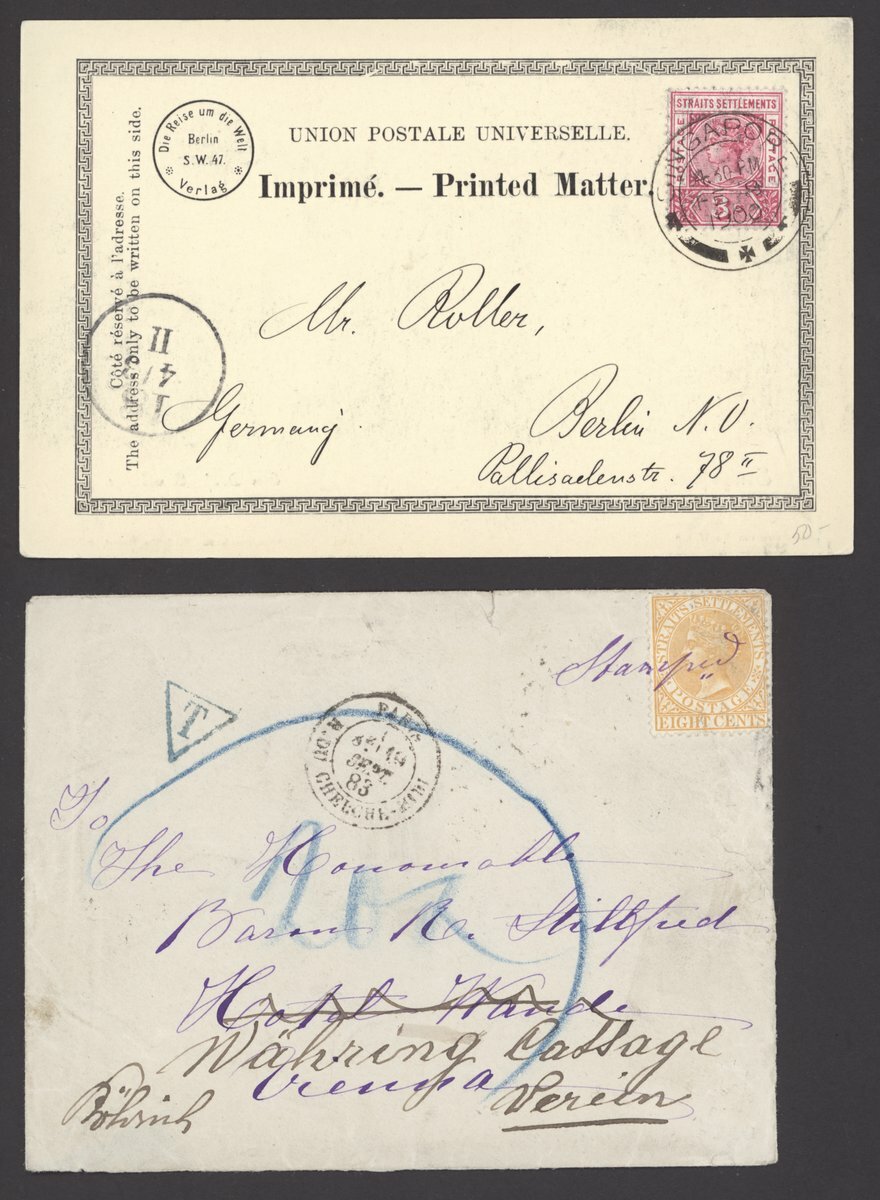 Die Reise um die Welt
Berlin
S.W. 47.
Verlag
UNION POSTALE UNIVERSELLE.
Imprimé. — Printed Matter.
STRAITS SETTLEMENTS
3
SINGAPORE
1900
Côté réservé à l'adresse.
The address only to be written on this side.
Mr. Roller,
Germany.
Berlin N.O.
Pallisadenstr. 78 II
50-
Stamped
STRAITS SETTLEMENTS
POSTAGE
EIGHT CENTS
T
PARIS
SEPT.
83
R. DU CHERCHE-MIDI
To
The Honourable
Baron R. Stillfried
Hotel Wande
Währing Cottage
Vienna
Verein